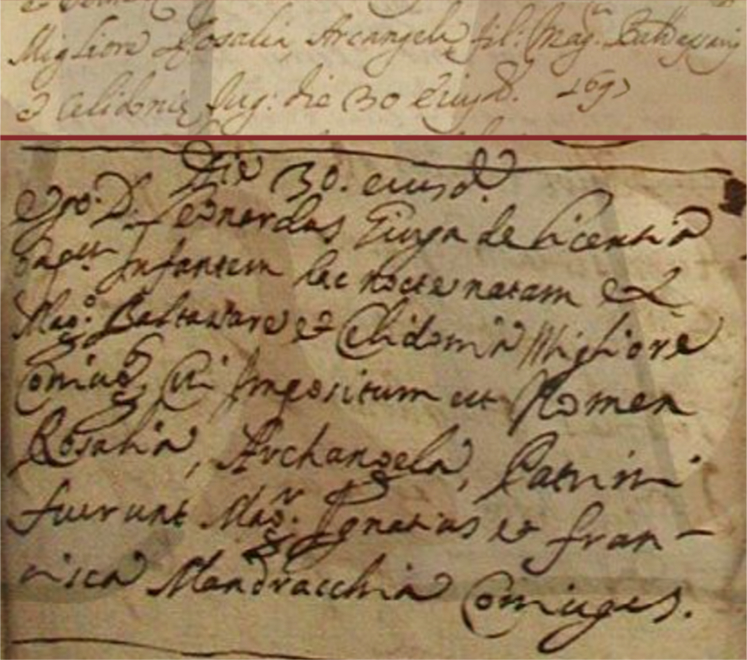 Migliore Rosalia Arcangela fil: Mag: Baltassaris
et Celidonie Jug: die 30 eiusd. 1697
Die 30. eiusd.
Ego D. Leonardus Giuga de licentia
bapt. Infantem hac nocte natam ex
Mag.o Baltassare et Elidomia Migliore
Coniug. Cui Impositum est Nomen
Rosalia, Archangela, Patrini
fuerunt Mag.r Ignatius et fran-
cisca Mandracchia Coniuges.